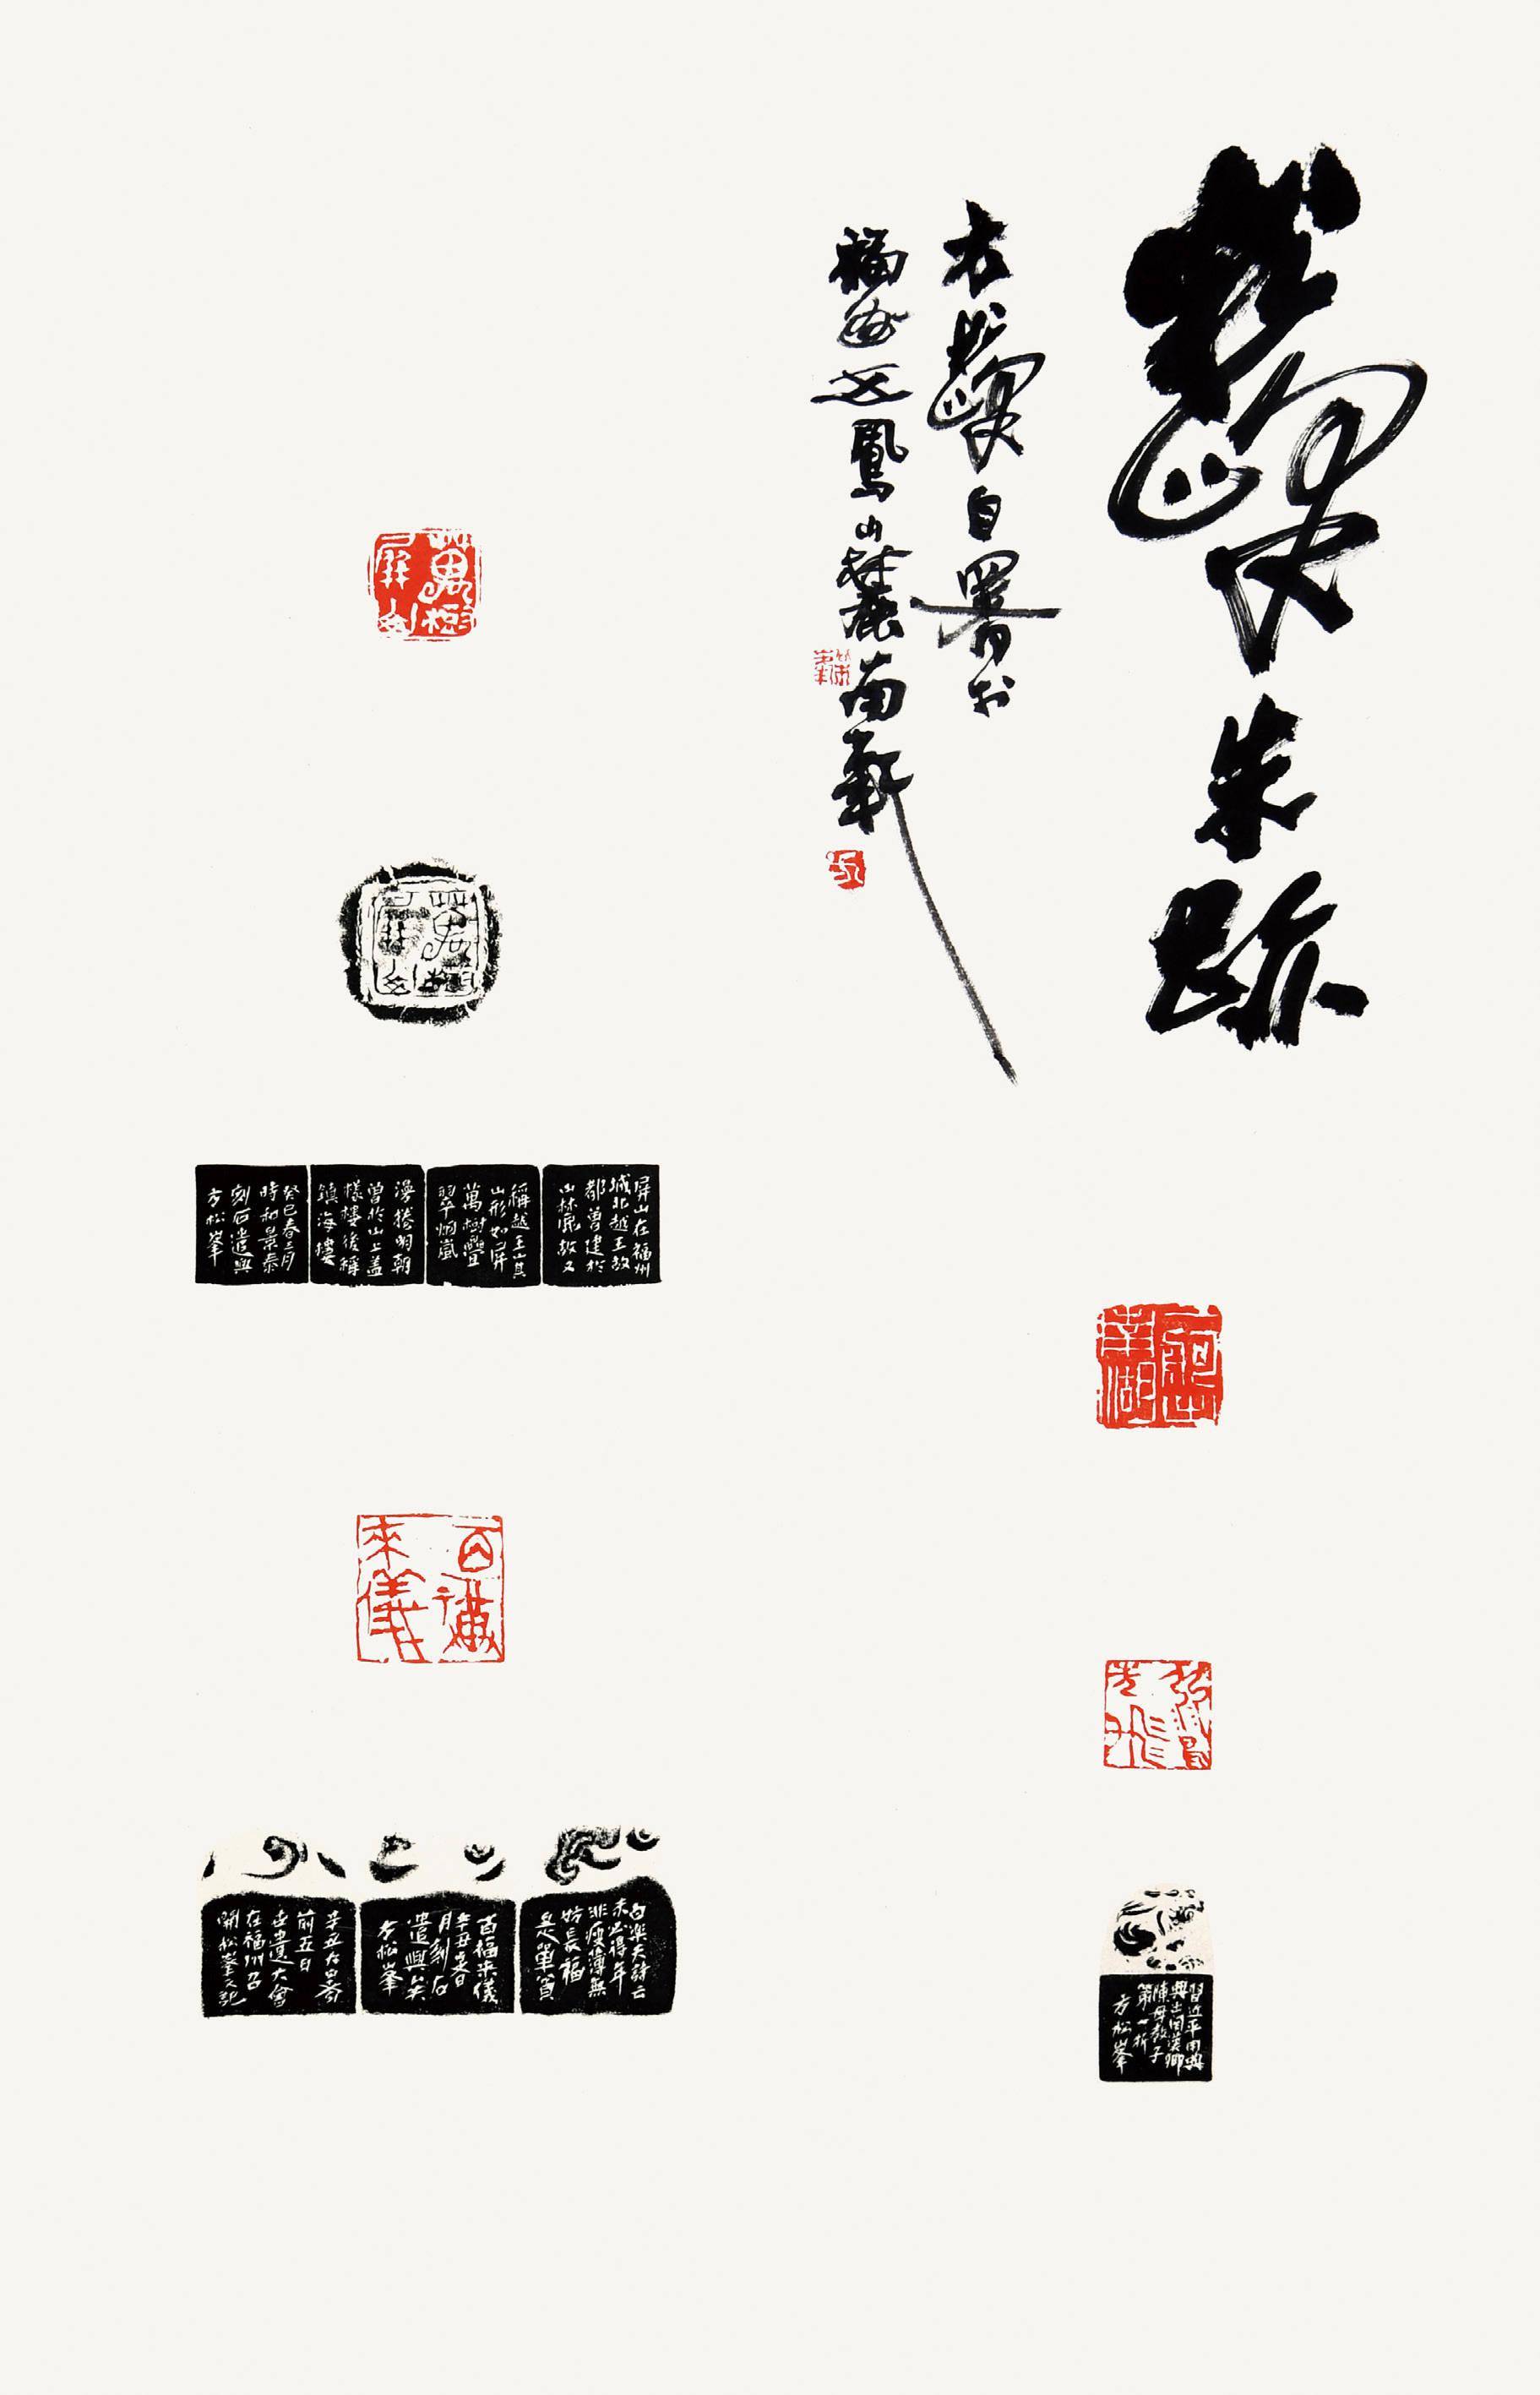 松峰朱跡
方松峰自署於
福州五鳳山麓南軒
萬樹屏山
屏山在福州
城北越王故
都曾建於
山林麓故又
稱越王山其
山形如屏
萬樹疊
翠烟嵐
漫捲明朝
曾於山上蓋
樣樓後稱
鎮海樓
癸巳春三月
時和景泰
刻石遣興
方松峯
百福來儀
白樂天詩云
未必得年
非瘦薄無
妨長福
是單貧
百福來儀
辛丑夏日
月刻石
遣興矣
方松峯
辛丑大暑
前五日
世遺大會
在福州召
開松峯又記
習近平用典
典出關漢卿
陳母教子
第一折
方松峯